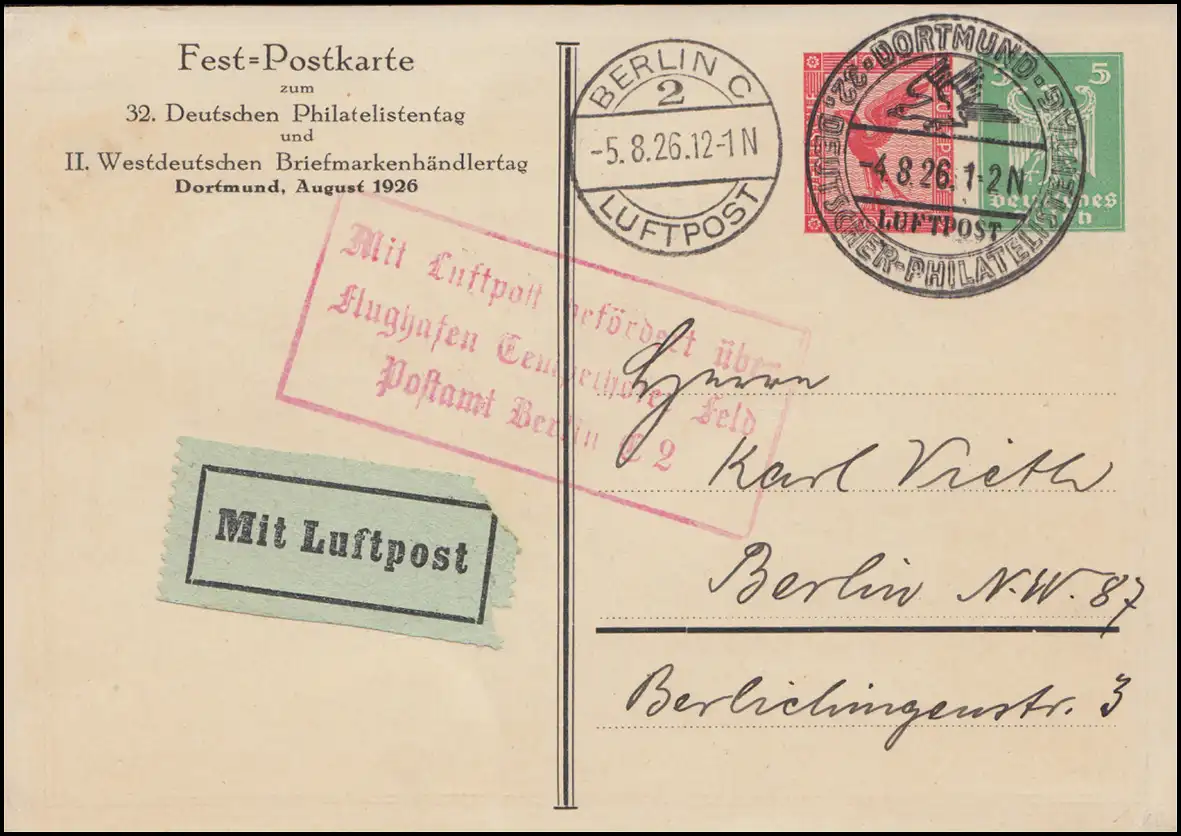 Fest=Postkarte
zum
32. Deutschen Philatelistentag
und
II. Westdeutschen Briefmarkenhändlertag
Dortmund, August 1926
BERLIN C
2
-5.8.26.12-1N
LUFTPOST
32. DEUTSCHER-PHILATELISTENTAG · DORTMUND ·
-4.8.26.1-2N
LUFTPOST
5
Deutsches
Mit Luftpost befördert über
Flughafen Tempelhofer Feld
Postamt Berlin C 2
Mit Luftpost
Herrn
Karl Vieth
Berlin N.W. 87
Berlichingenstr. 3